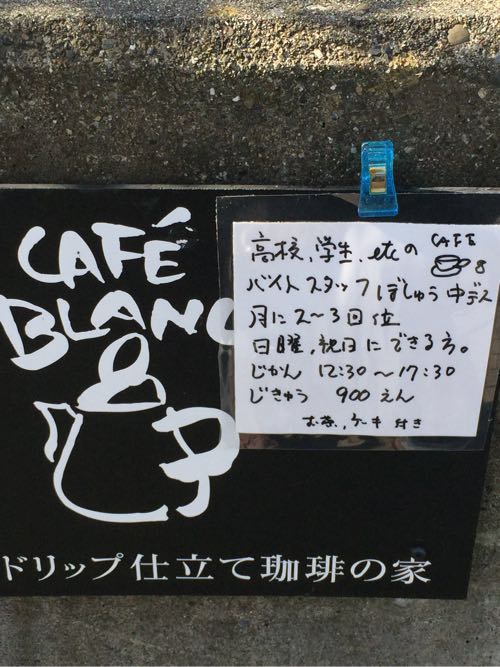 CAFÉ
BLANC
高校、学生、etcの
CAFE
バイトスタッフぼしゅう中デス
月に2～3回位
日曜、祝日にできる方。
じかん 12:30～17:30
じきゅう 900えん
お茶、ケーキ付き
ドリップ仕立て珈琲の家